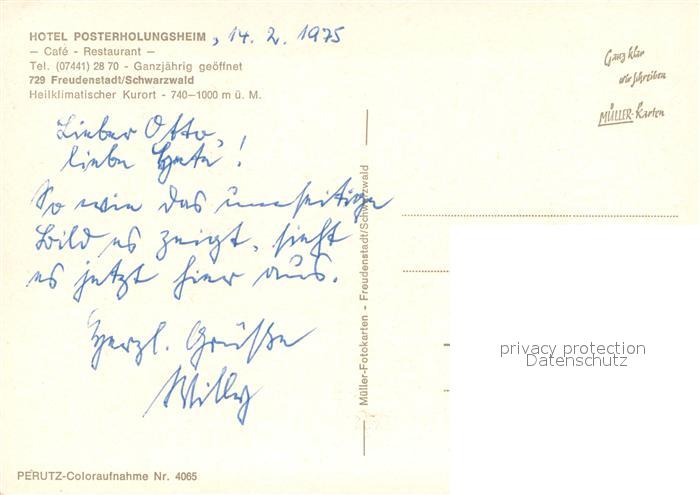 HOTEL POSTERHOLUNGSHEIM, 14. 2. 1975
— Café - Restaurant —
Tel. (07441) 28 70 - Ganzjährig geöffnet
729 Freudenstadt/Schwarzwald
Heilklimatischer Kurort - 740—1000 m ü. M.
Lieber Otto,
liebe !
So wie das umseitige
Bild es zeigt, sieht
es jetzt hier aus.
Herzl. Grüße
Willy
PERUTZ-Coloraufnahme Nr. 4065
Müller-Fotokarten - Freudenstadt/Schwarzwald
Ganz klar
wir schreiben
MÜLLER-Karten
privacy protection
Datenschutz